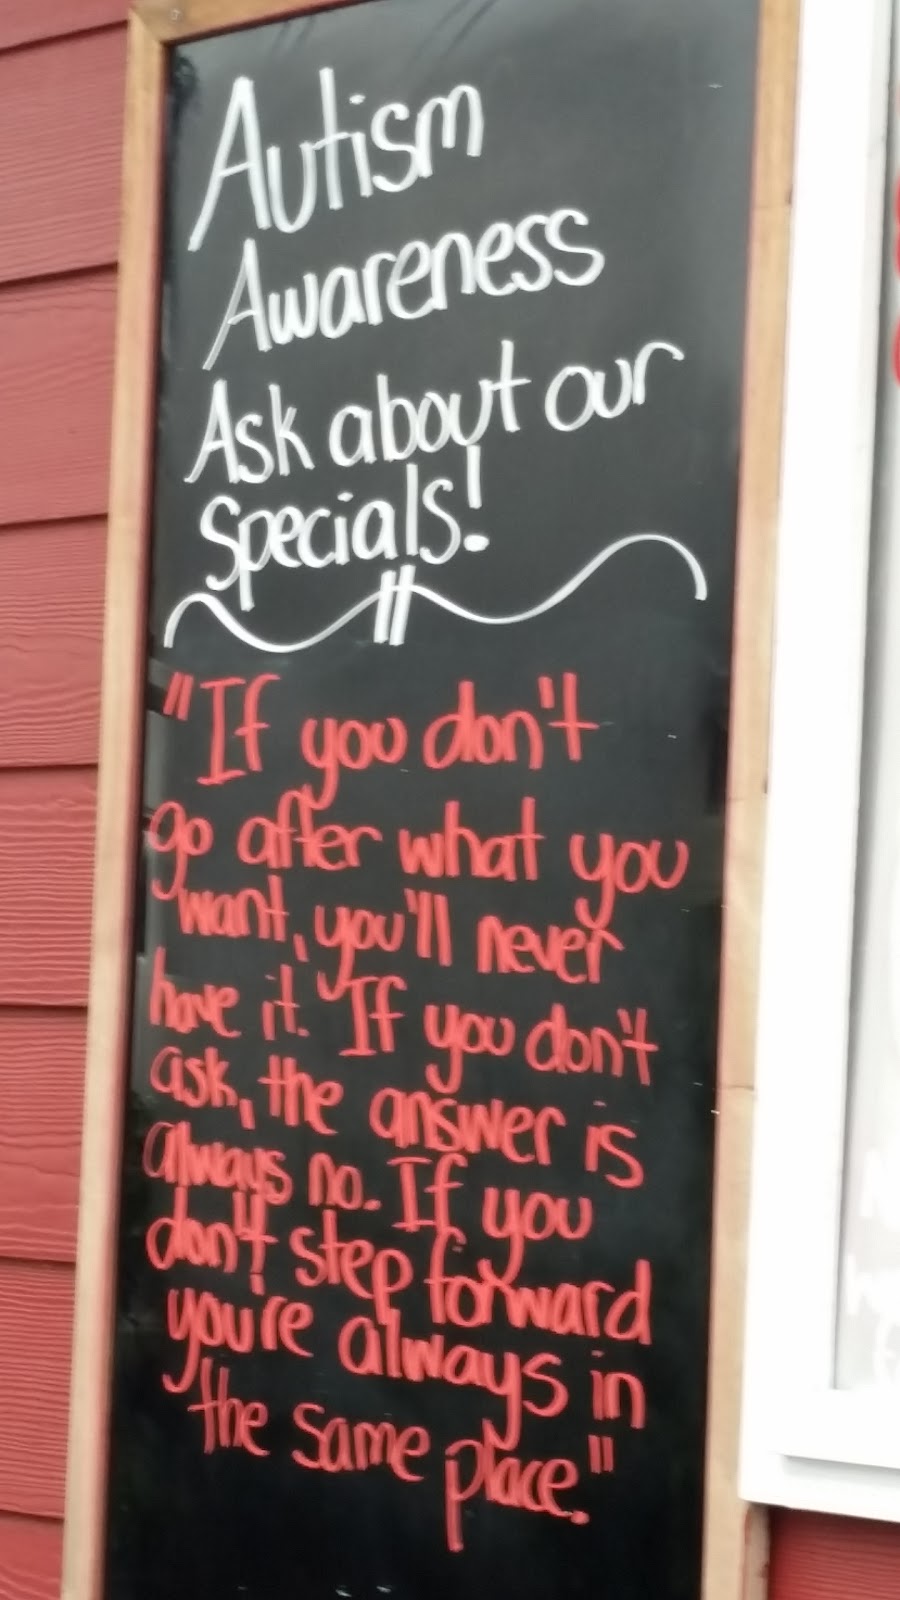 Autism
Awareness
Ask about our
specials!
"If you don't
go after what you
want, you'll never
have it. If you don't
ask, the answer is
always no. If you
don't step forward
you're always in
the same place."